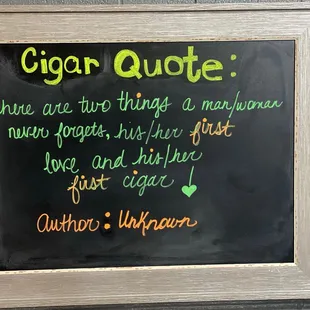 Cigar Quote:
here are two things a man/woman
never forgets, his/her first
love and his/her
first cigar!
Author: Unknown